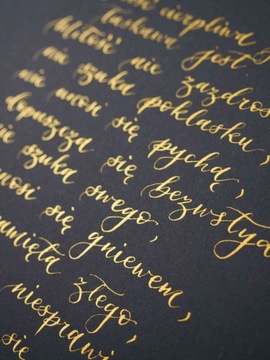 nie cierpliwa
łaskawa jest
Miłość nie zazdroś
nie szuka poklasku,
nie unosi się pychą,
dopuszcza się bezwstyd
nie szuka swego,
unosi się gniewem,
pamięta złego,
niesprawi
się